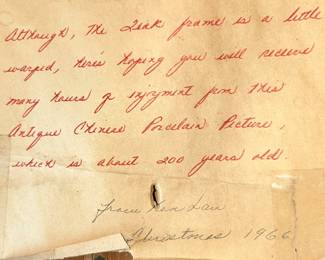 Although, the Teak frame is a little
warped, here's hoping you will receive
many hours of injoyment from this
Antique Chinese Porcelain Picture,
which is about 200 years old.
From
Christmas 1966